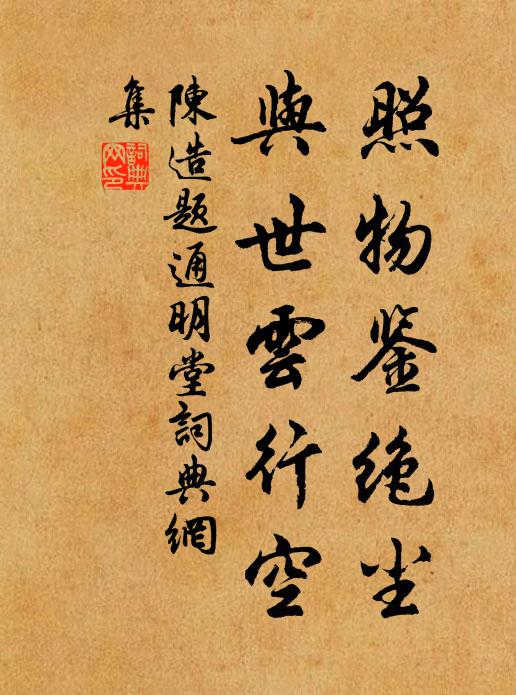 照物鉴绝尘
與世雲行空
陳造題通明堂詞典網
集
詞典網印